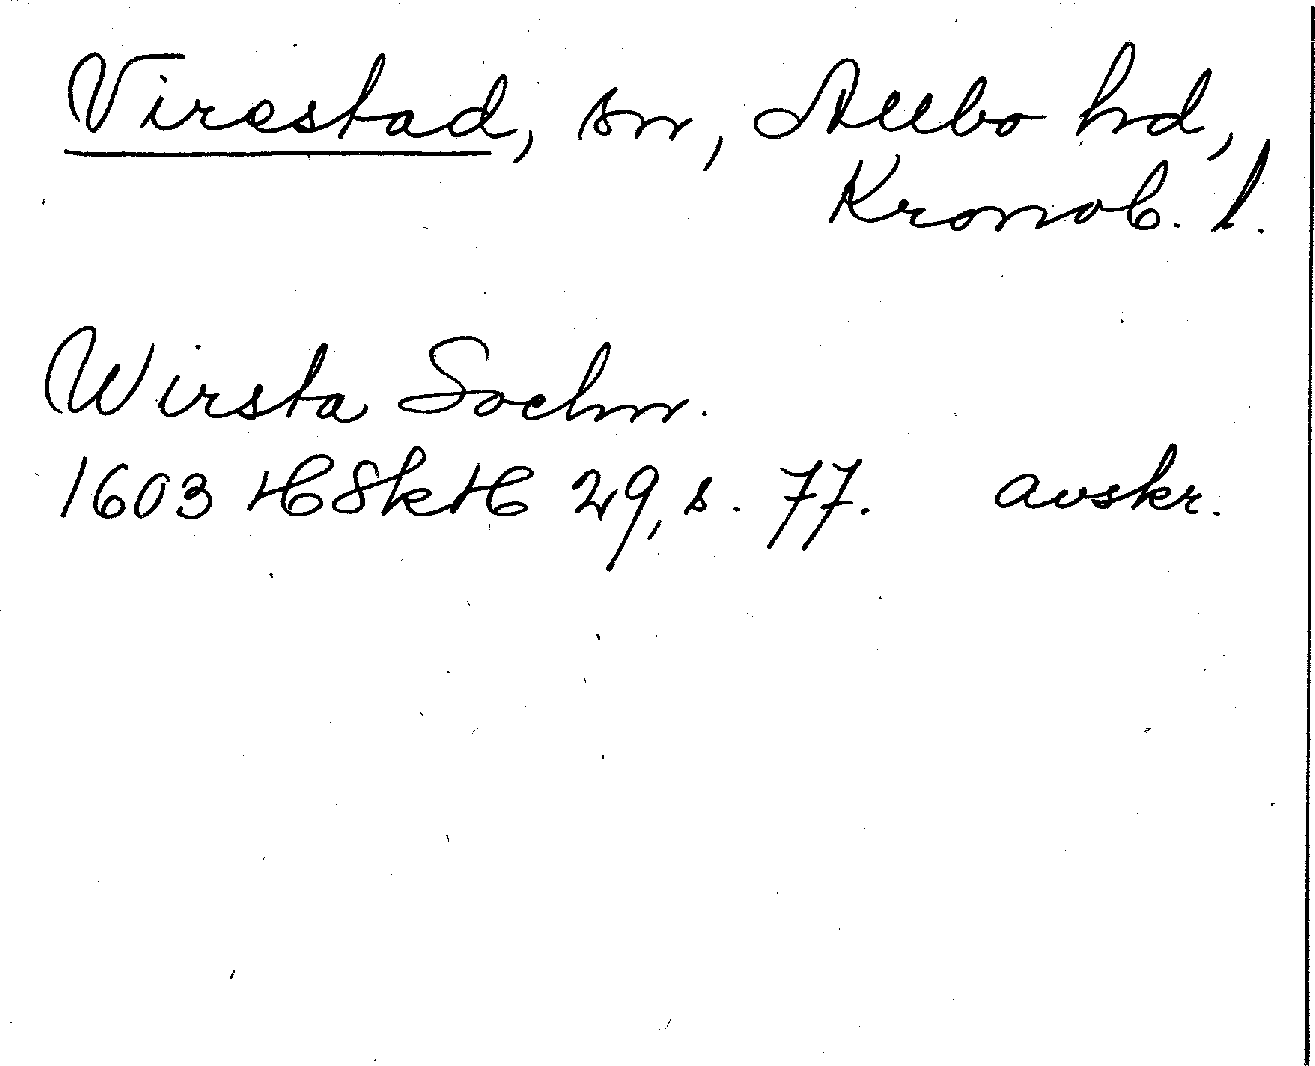 Virestad, sn, Allbo hd,
Kronob. l.
Wirsta Sochn.
1603 HSkH 29, s. 77. avskr.